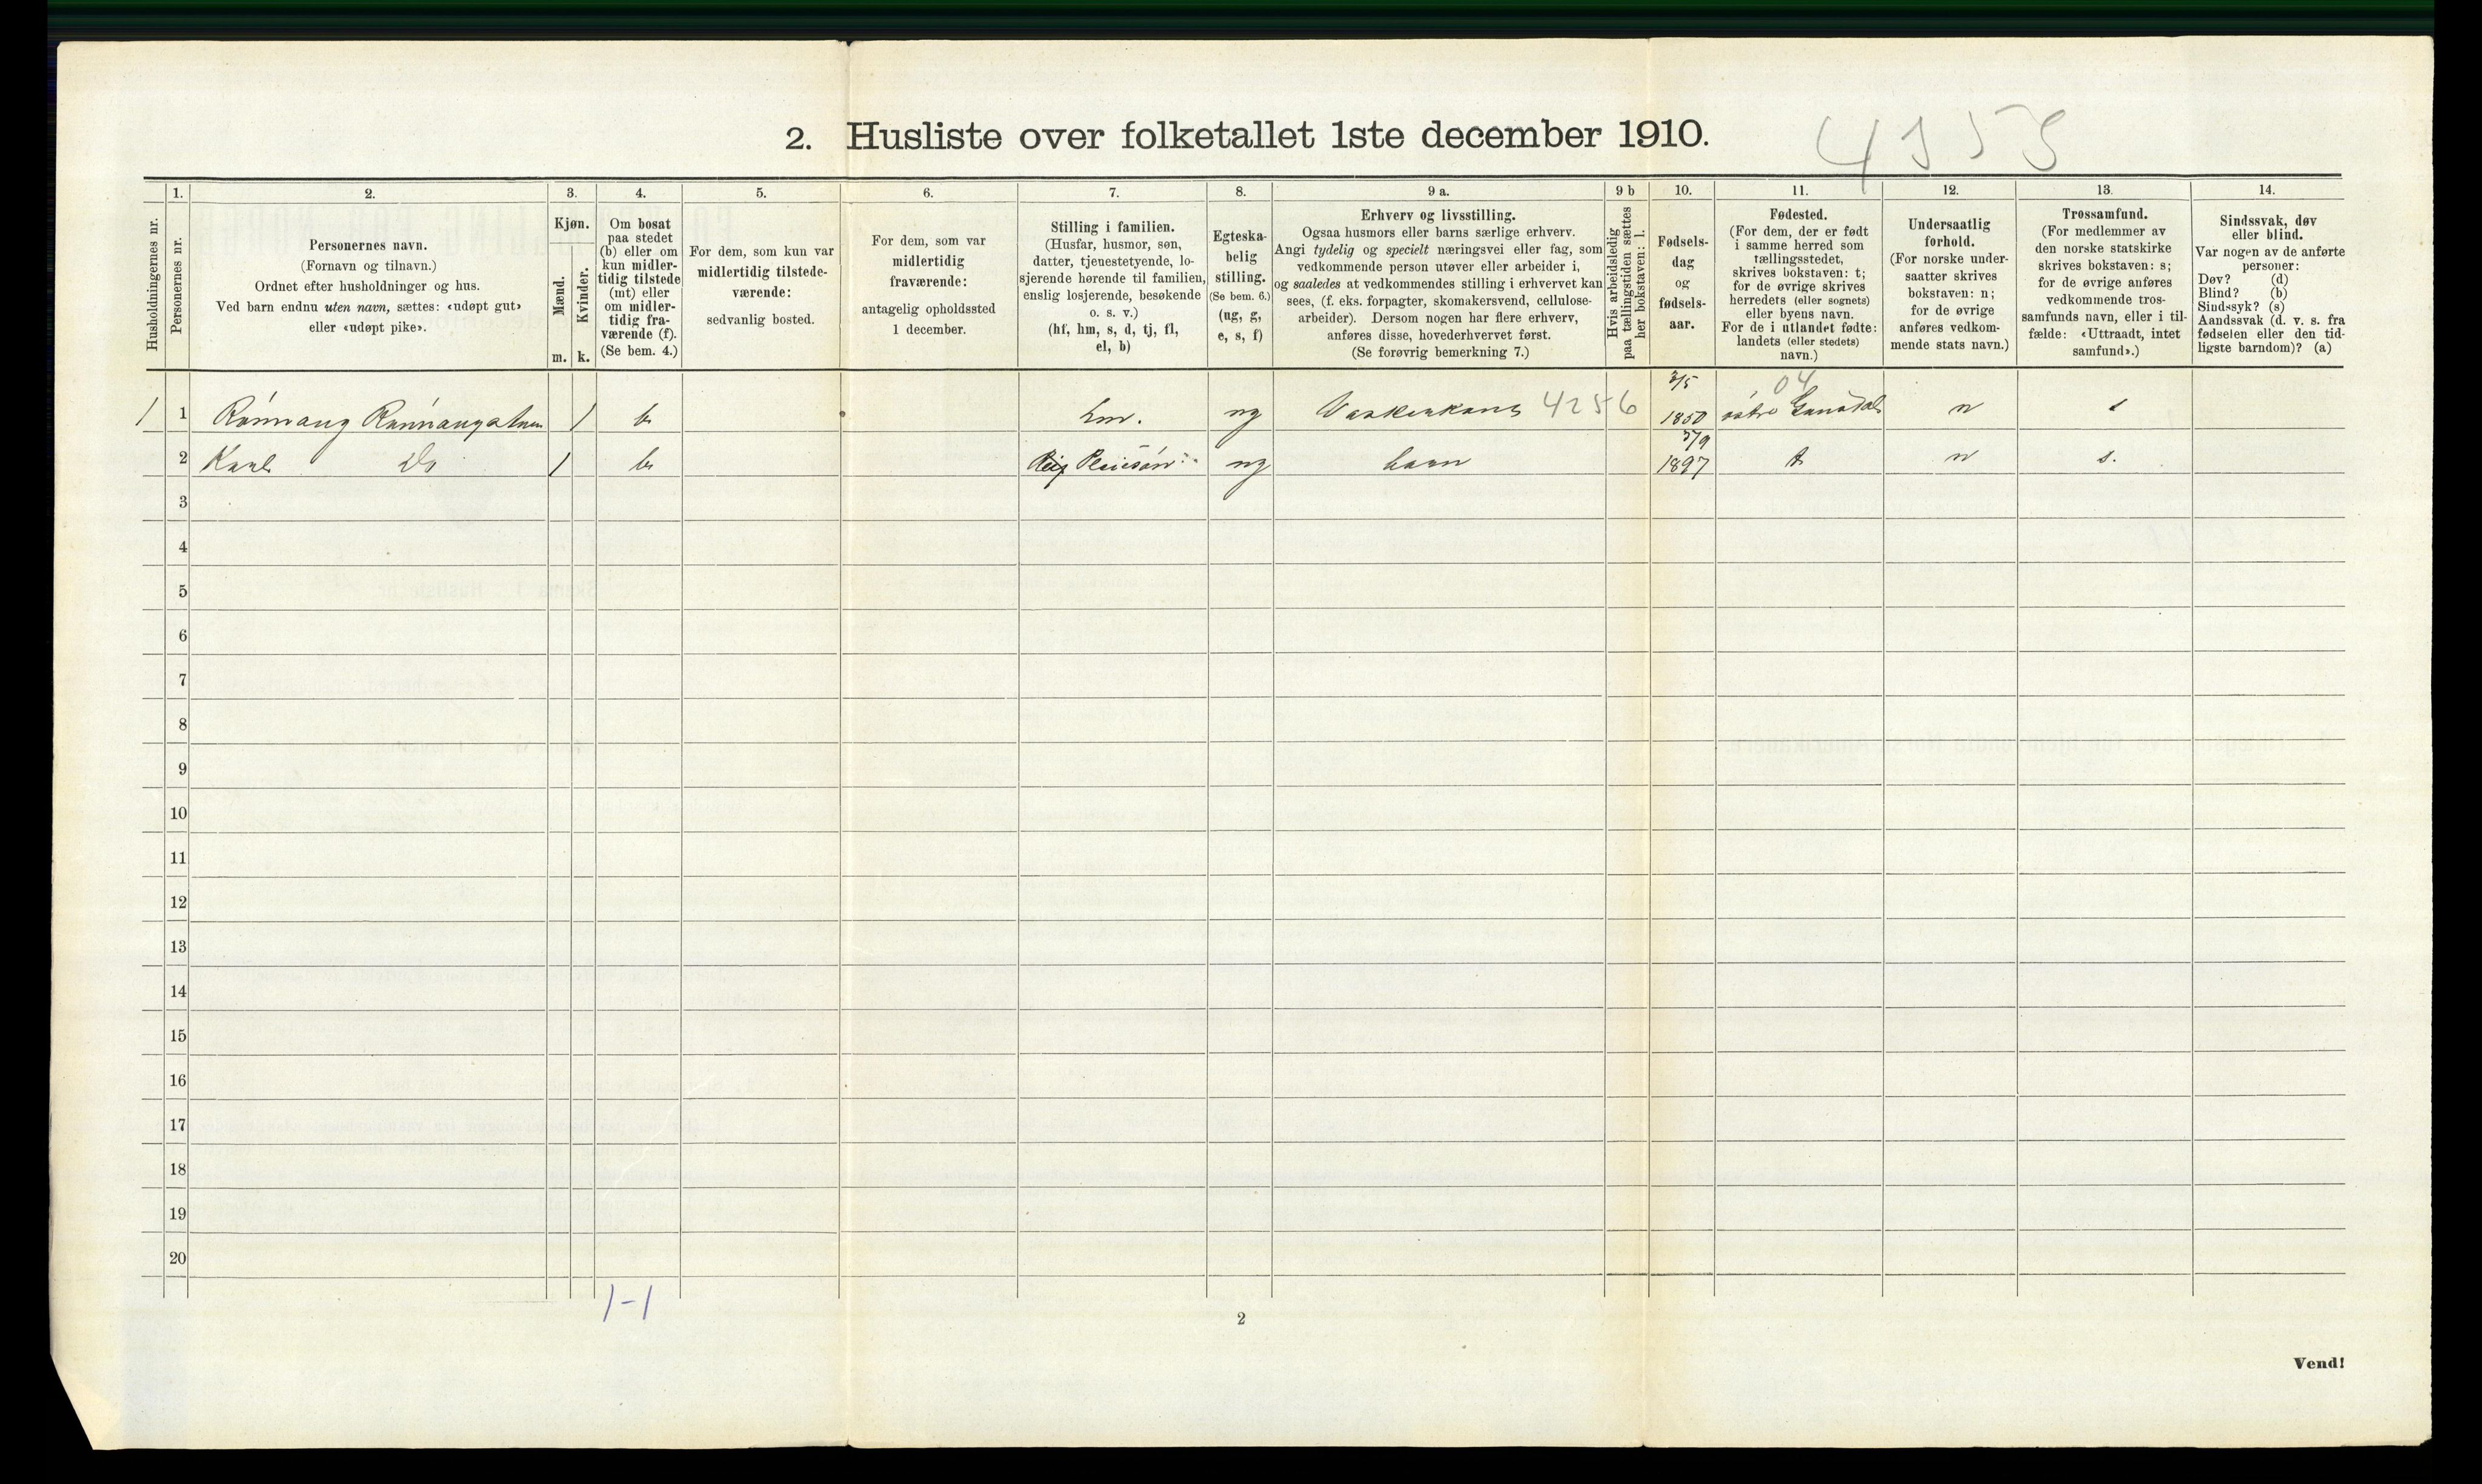 2. Husliste over folketallet 1ste december 1910.
1. 2. 3. 4. 5. 6. 7. 8. 9 a. 9 b 10. 11. 12. 13. 14.
Husholdningernes nr.
Personernes nr.
Personernes navn.
(Fornavn og tilnavn.)
Ordnet efter husholdninger og hus.
Ved barn endnu uten navn, sættes: «udøpt gut»
eller «udøpt pike».
Kjøn.
Mænd.
Kvinder.
m. k.
Om bosat
paa stedet
(b) eller om
kun midler-
tidig tilstede
(mt) eller
om midler-
tidig fra-
værende (f).
(Se bem. 4.)
For dem, som kun var
midlertidig tilstede-
værende:
sedvanlig bosted.
For dem, som var
midlertidig
fraværende:
antagelig opholdssted
1 december.
Stilling i familien.
(Husfar, husmor, søn,
datter, tjenestetyende, lo-
sjerende hørende til familien,
enslig losjerende, besøkende
o. s. v.)
(hf, hm, s, d, tj, fl,
el, b)
Egteska-
belig
stilling.
(Se bem. 6.)
(ug, g,
e, s, f)
Erhverv og livsstilling.
Ogsaa husmors eller barns særlige erhverv.
Angi tydelig og specielt næringsvei eller fag, som
vedkommende person utøver eller arbeider i,
og saaledes at vedkommendes stilling i erhvervet kan
sees, (f. eks. forpagter, skomakersvend, cellulose-
arbeider). Dersom nogen har flere erhverv,
anføres disse, hovederhvervet først.
(Se forøvrig bemerkning 7.)
Hvis arbeidsledig
paa tællingstiden sættes
her bokstaven: l.
Fødsels-
dag
og
fødsels-
aar.
Fødested.
(For dem, der er født
i samme herred som
tællingsstedet,
skrives bokstaven: t;
for de øvrige skrives
herredets (eller sognets)
eller byens navn.
For de i utlandet fødte:
landets (eller stedets)
navn.)
Undersaatlig
forhold.
(For norske under-
saatter skrives
bokstaven: n;
for de øvrige
anføres vedkom-
mende stats navn.)
Trossamfund.
(For medlemmer av
den norske statskirke
skrives bokstaven: s;
for de øvrige anføres
vedkommende tros-
samfunds navn, eller i til-
fælde: «Uttraadt, intet
samfund».)
Sindssvak, døv
eller blind.
Var nogen av de anførte
personer:
Døv? (d)
Blind? (b)
Sindssyk? (s)
Aandssvak (d. v. s. fra
fødselen eller den tid-
ligste barndom)? (a)
1 1 1 b hm. ug 4256 3/5 1850 04 n s
2 Karl Do 1 b ug barn 5/9 1897 t n s.
3
4
5
6
7
8
9
10
11
12
13
14
15
16
17
18
19
20
1-1
2
Vend!